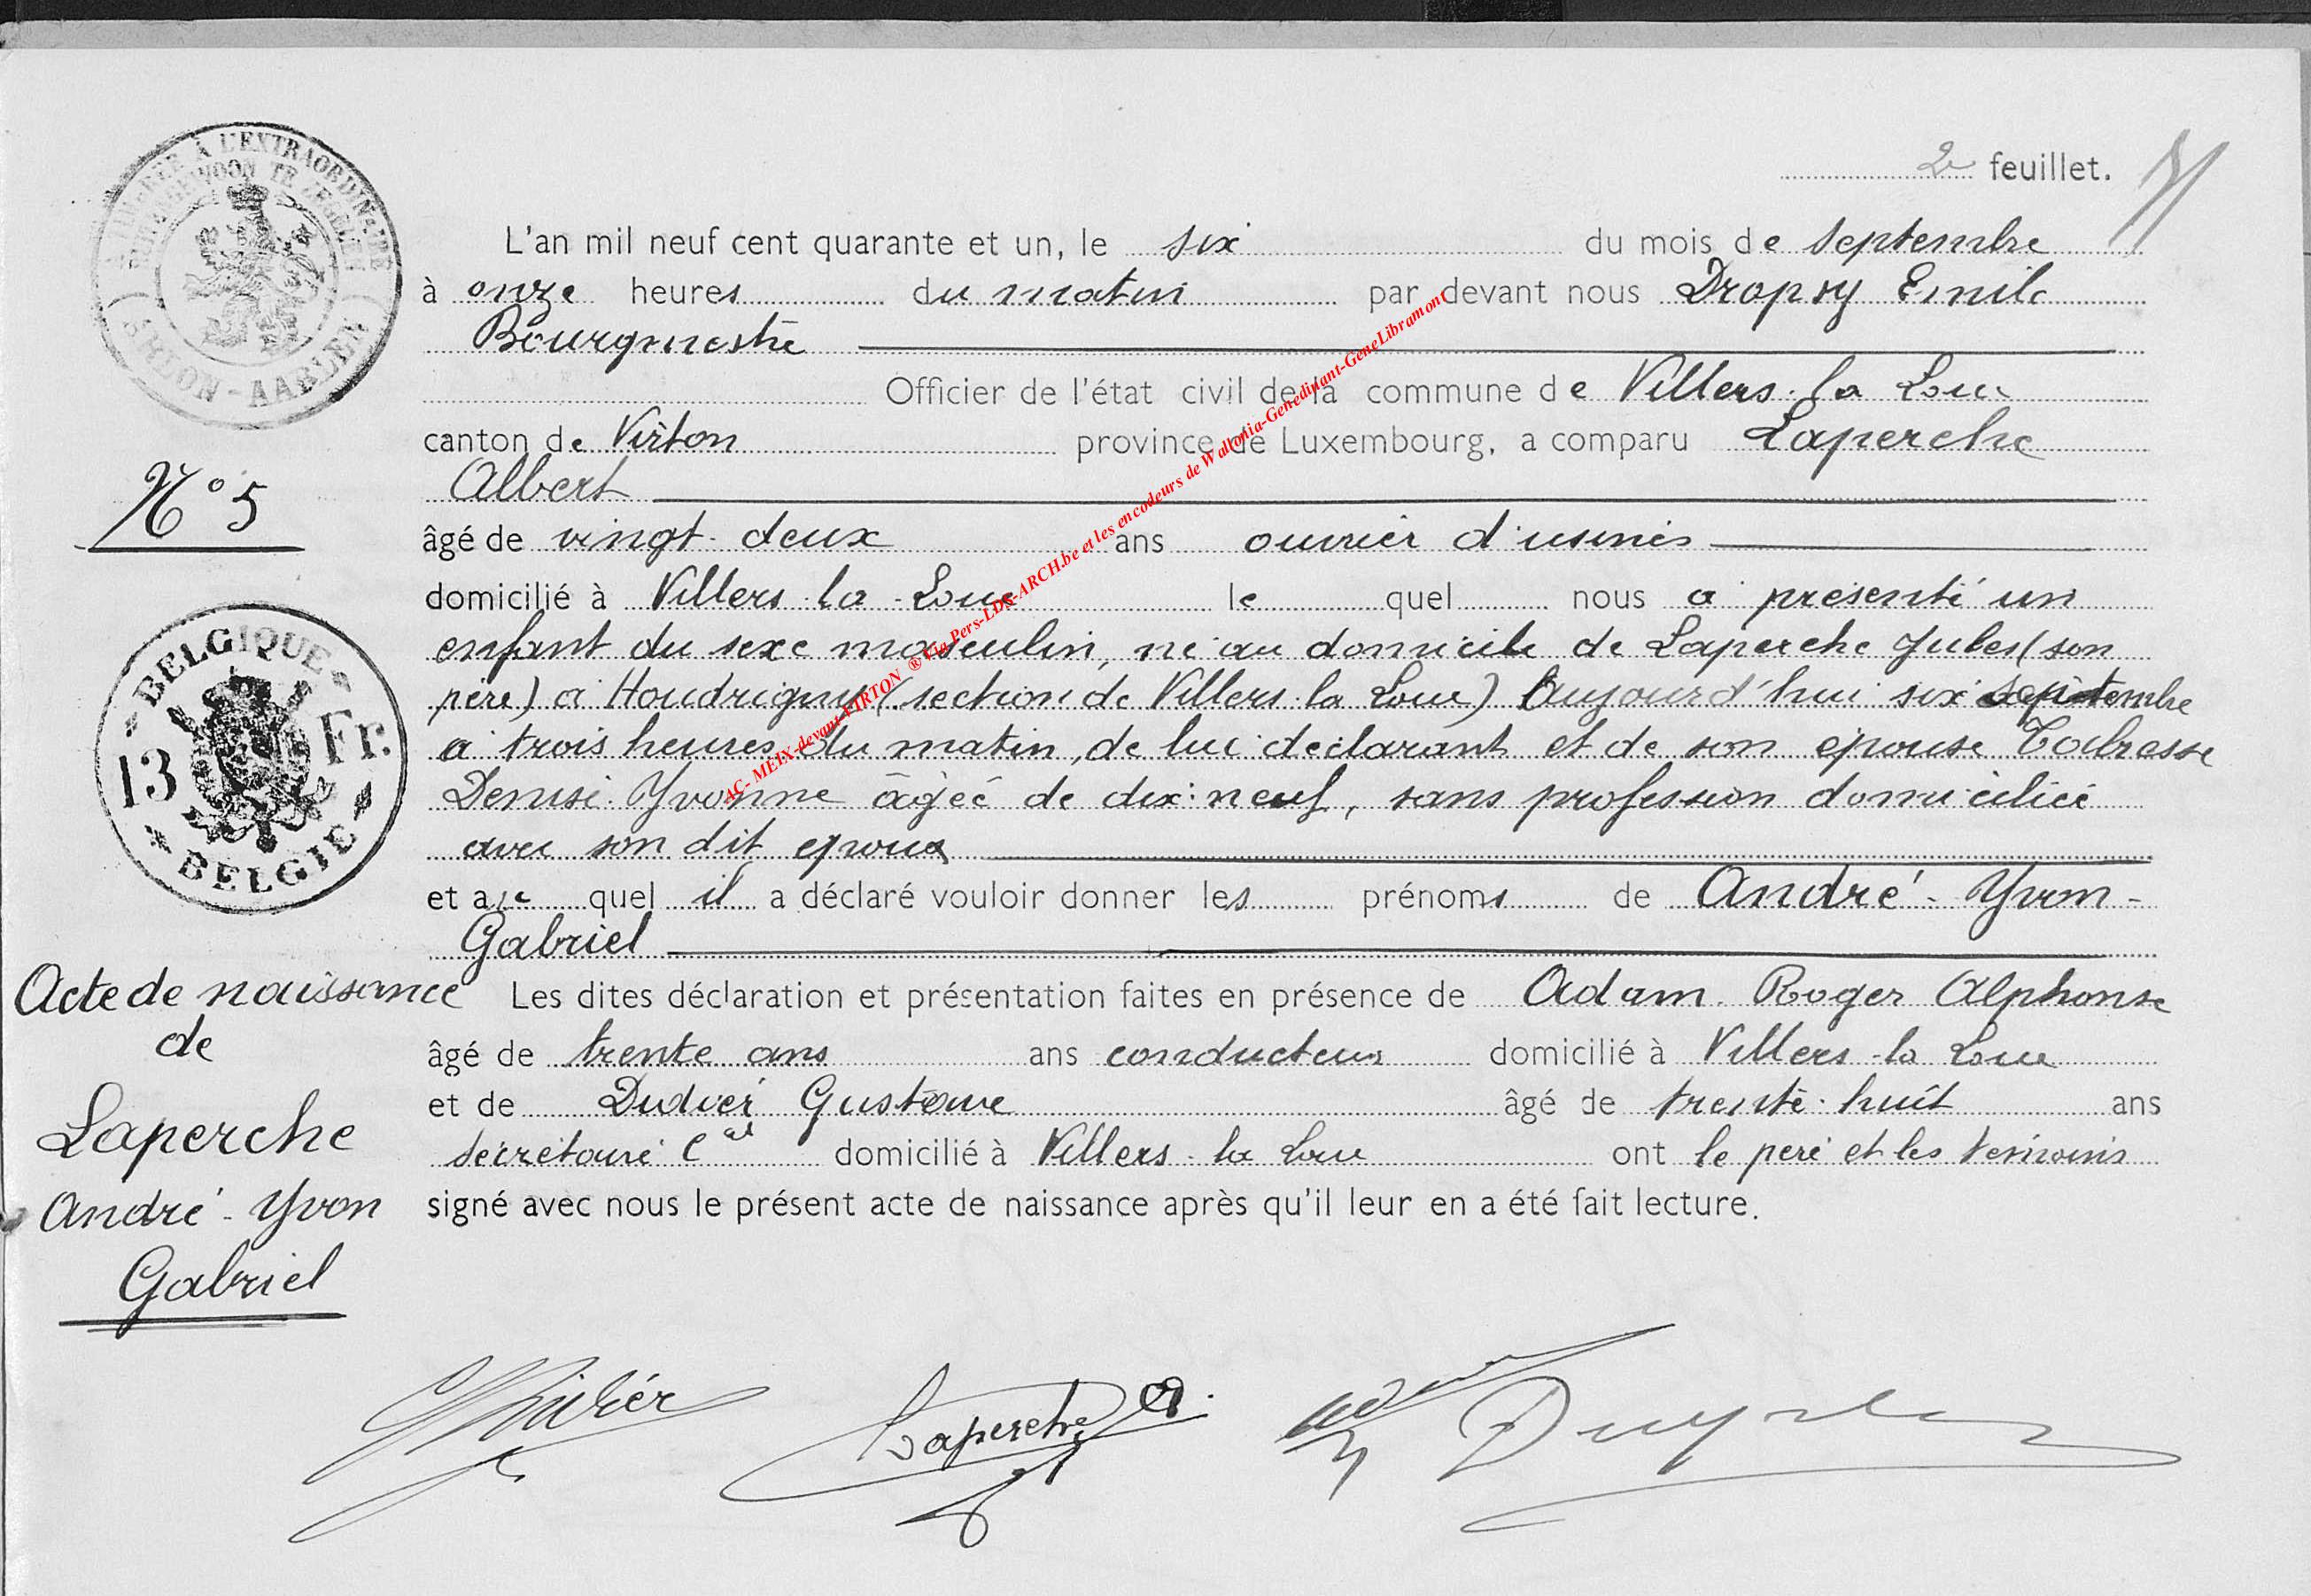 TIMBRÉ À L'EXTRAORDINAIRE
BUITENGEWOON TE ZEGELEN
ARLON-AARLEN
2e feuillet.
L'an mil neuf cent quarante et un, le six du mois de septembre
à onze heures du matin par devant nous Dropsy Emile
Bourgmestre
Officier de l'état civil de la commune de Villers-la Loue
canton de Virton province de Luxembourg, a comparu Laperche
Albert
N° 5
âgé de vingt-deux ans ouvrier d'usines
domicilié à Villers-la-Loue lequel nous a présenté un
enfant du sexe masculin, né au domicile de Laperche Jules (son
père) à Houdrigny (section de Villers-la Loue) Aujourd'hui six septembre
à trois heures du matin, de lui déclarant et de son épouse Tabresse
Denise-Yvonne âgée de dix-neuf, sans profession domiciliée
avec son dit époux
BELGIQUE
13 Fr.
BELGIE
et auquel il a déclaré vouloir donner les prénoms de André-Yvon-
Gabriel
Acte de naissance
de
Laperche
André-Yvon
Gabriel
Les dites déclaration et présentation faites en présence de Adam Roger Alphonse
âgé de trente ans ans conducteur domicilié à Villers-la Loue
et de Didier Gustave âgé de trente-huit ans
secrétaire Cal domicilié à Villers-la Loue ont le père et les témoins
signé avec nous le présent acte de naissance après qu'il leur en a été fait lecture.
GDidier Laperche A. Adam Dropsy
AC- MEIX-devant-VIRTON ® Via Pers-LDS-ARCH.be et les encodeurs de Wallonia-Genedinant-GeneLibramont